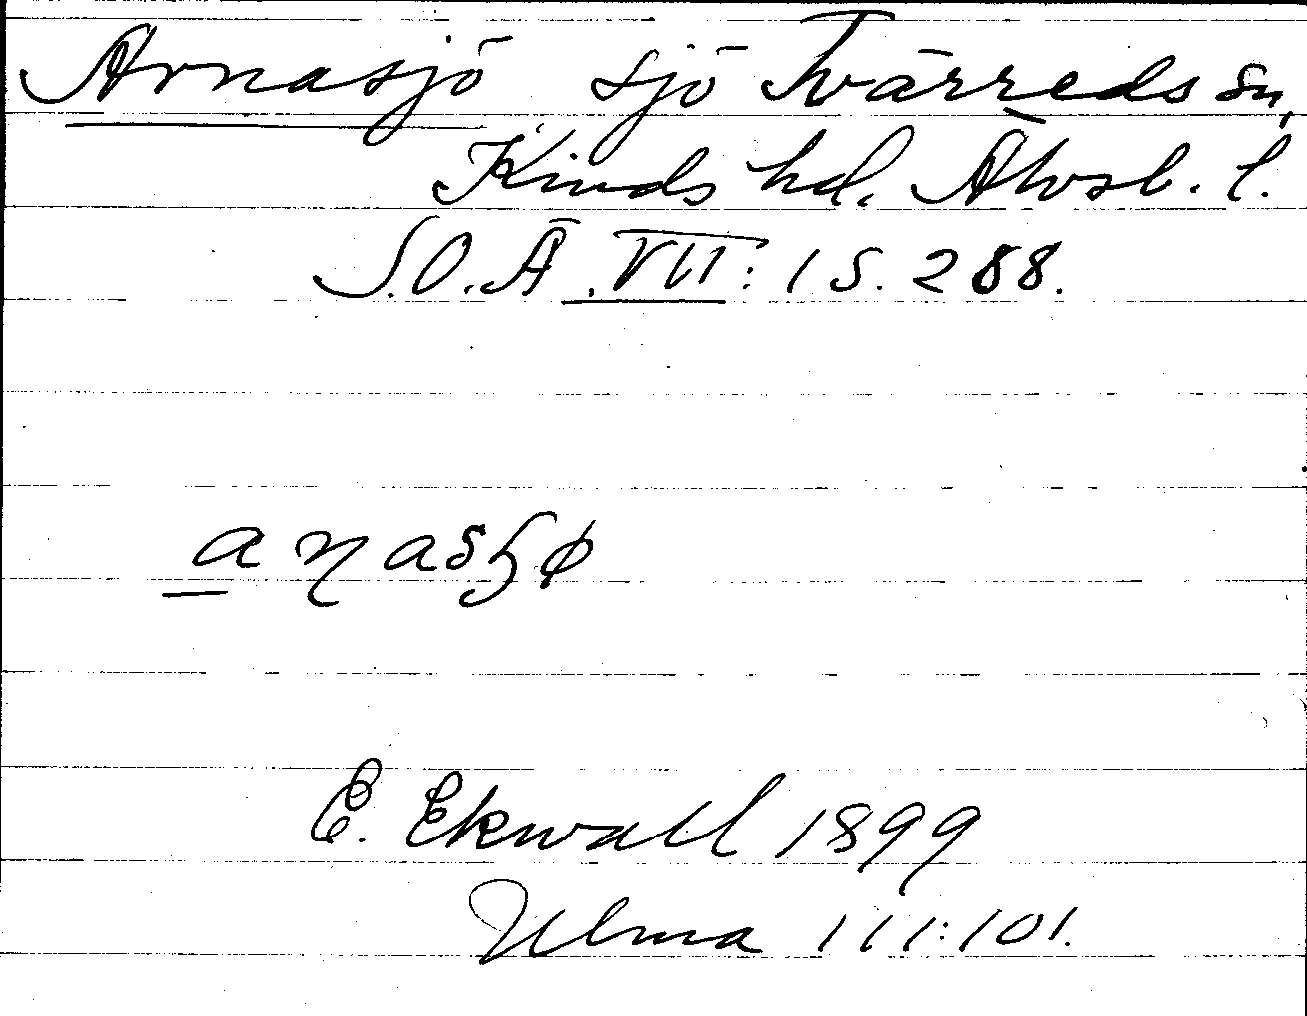 Arnasjö sjö Tvärreds sn,
Kinds hd. Älvsb. l.
S.O.Ä. VII: 1 S. 288.
E. Ekwall 1899
Ulma 111:101.